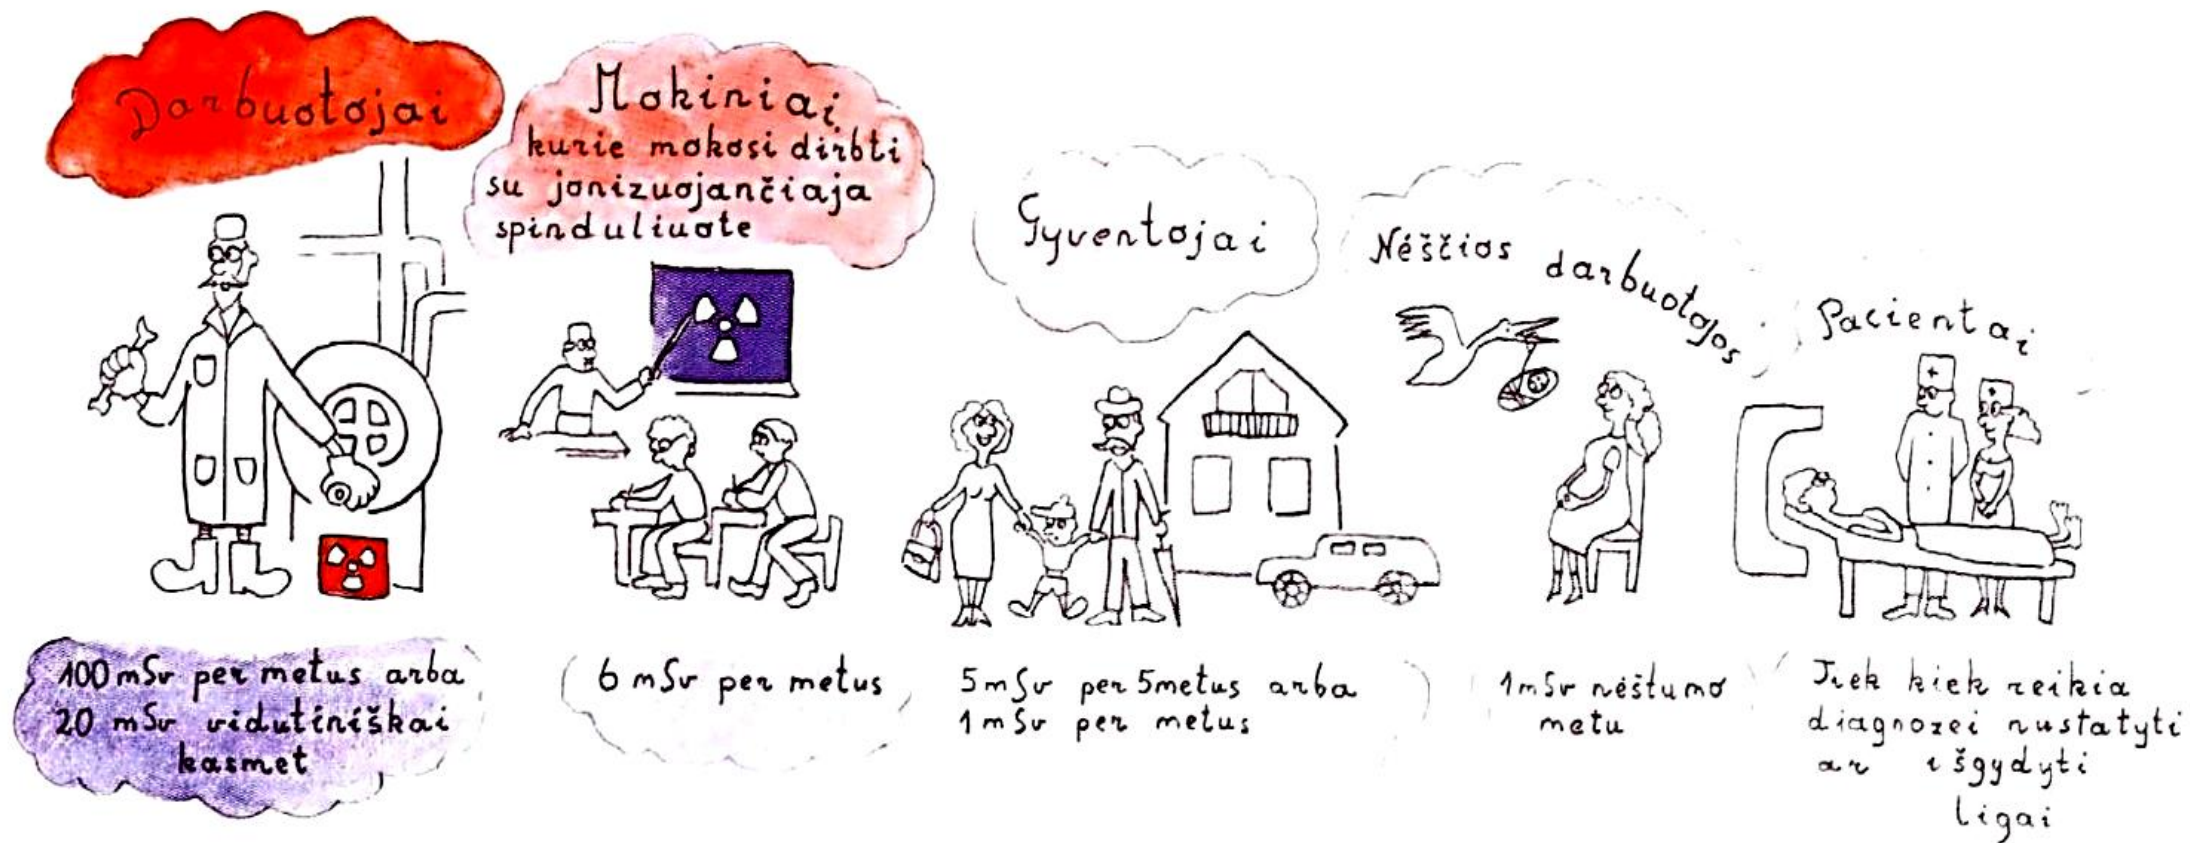 Darbuotojai
Mokiniai
kurie mokosi dirbti
su jonizuojančiaja
spinduliuote
Gyventojai
Nėščios darbuotojos
Pacientai
100 mSv per metus arba
20 mSv vidutiniškai
kasmet
6 mSv per metus
5 mSv per 5 metus arba
1 mSv per metus
1 mSv nėštumo
metu
Tiek kiek reikia
diagnozei nustatyti
ar išgydyti
ligai